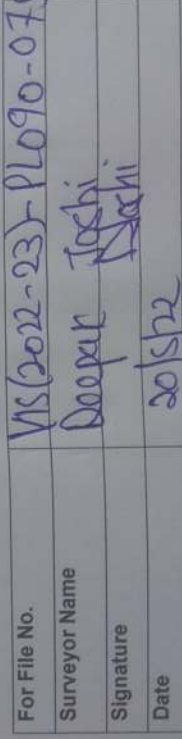 For File No. VIS(2022-23)-PL090-07
Surveyor Name Deepak Joshi
Signature DJoshi
Date 20/5/22